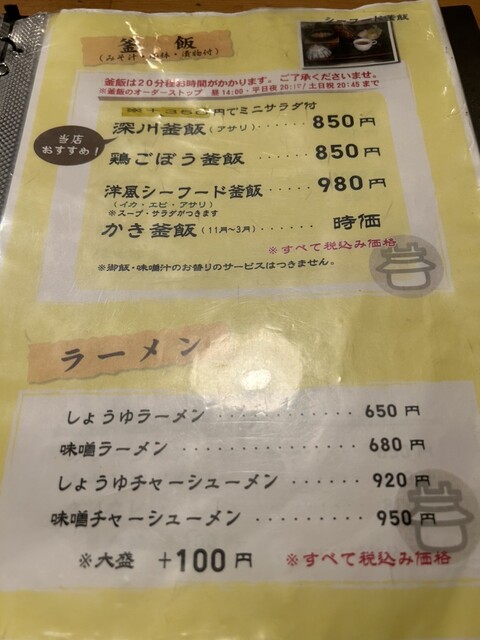 シーフード釜飯
釜飯
(みそ汁・漬物付)
釜飯は20分程お時間がかかります。ご了承くださいませ。
※釜飯のオーダーストップ 昼14:00・平日夜 土日祝20:45まで
円でミニサラダ付
当店おすすめ!
深川釜飯(アサリ)・・・・・ 850円
鶏ごぼう釜飯・・・・・ 850円
洋風シーフード釜飯・・・・ 980円
(イカ・エビ・アサリ)
※スープ・サラダがつきます
かき釜飯(11月~3月)・・・・・・ 時価
※すべて税込み価格
※御飯・味噌汁のお替りのサービスはつきません。
ラーメン
しょうゆラーメン・・・・・・・・・・・・ 650円
味噌ラーメン・・・・・・・・・・・・・・・ 680円
しょうゆチャーシューメン・・・・・・・ 920円
味噌チャーシューメン・・・・・・・・・ 950円
※大盛 +100円 ※すべて税込み価格